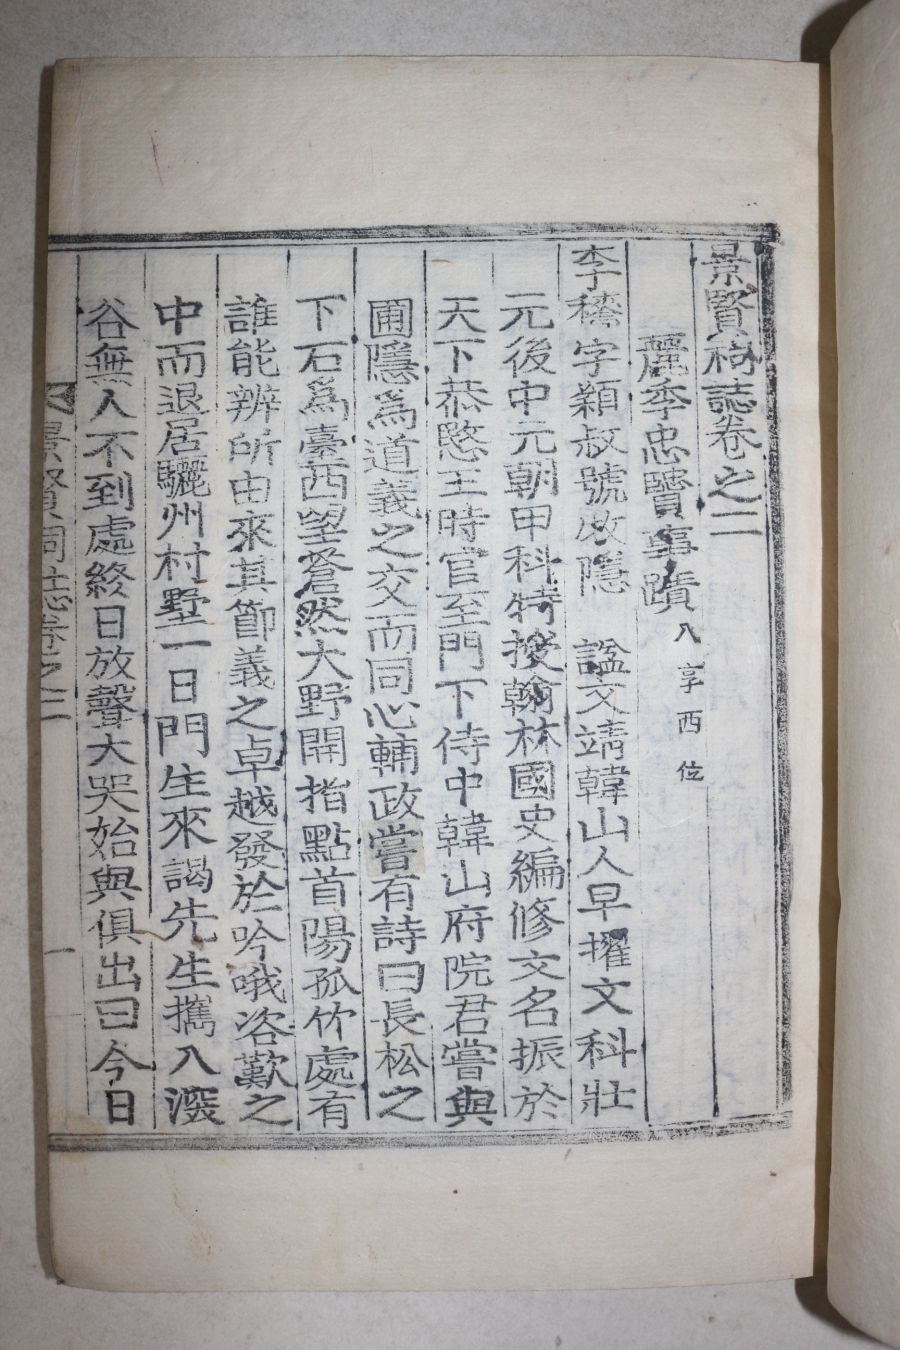 景賢祠誌卷之二
麗季忠賢事蹟 八享西位
李穡字穎叔號牧隱 諡文靖韓山人早擢文科壯
元後中元朝甲科特授翰林國史編修文名振於
天下恭愍王時官至門下侍中韓山府院君嘗與
圃隱為道義之交而同心輔政嘗有詩曰長松之
下石爲臺西望蒼然大野開指點首陽孤竹處有
誰能辨所由來其節義之卓越發於吟哦咨歎之
中而退居驪州村墅一日門生來謁先生携入深
谷無人不到處終日放聲大哭始與俱出曰今日
景賢祠誌卷之二 一